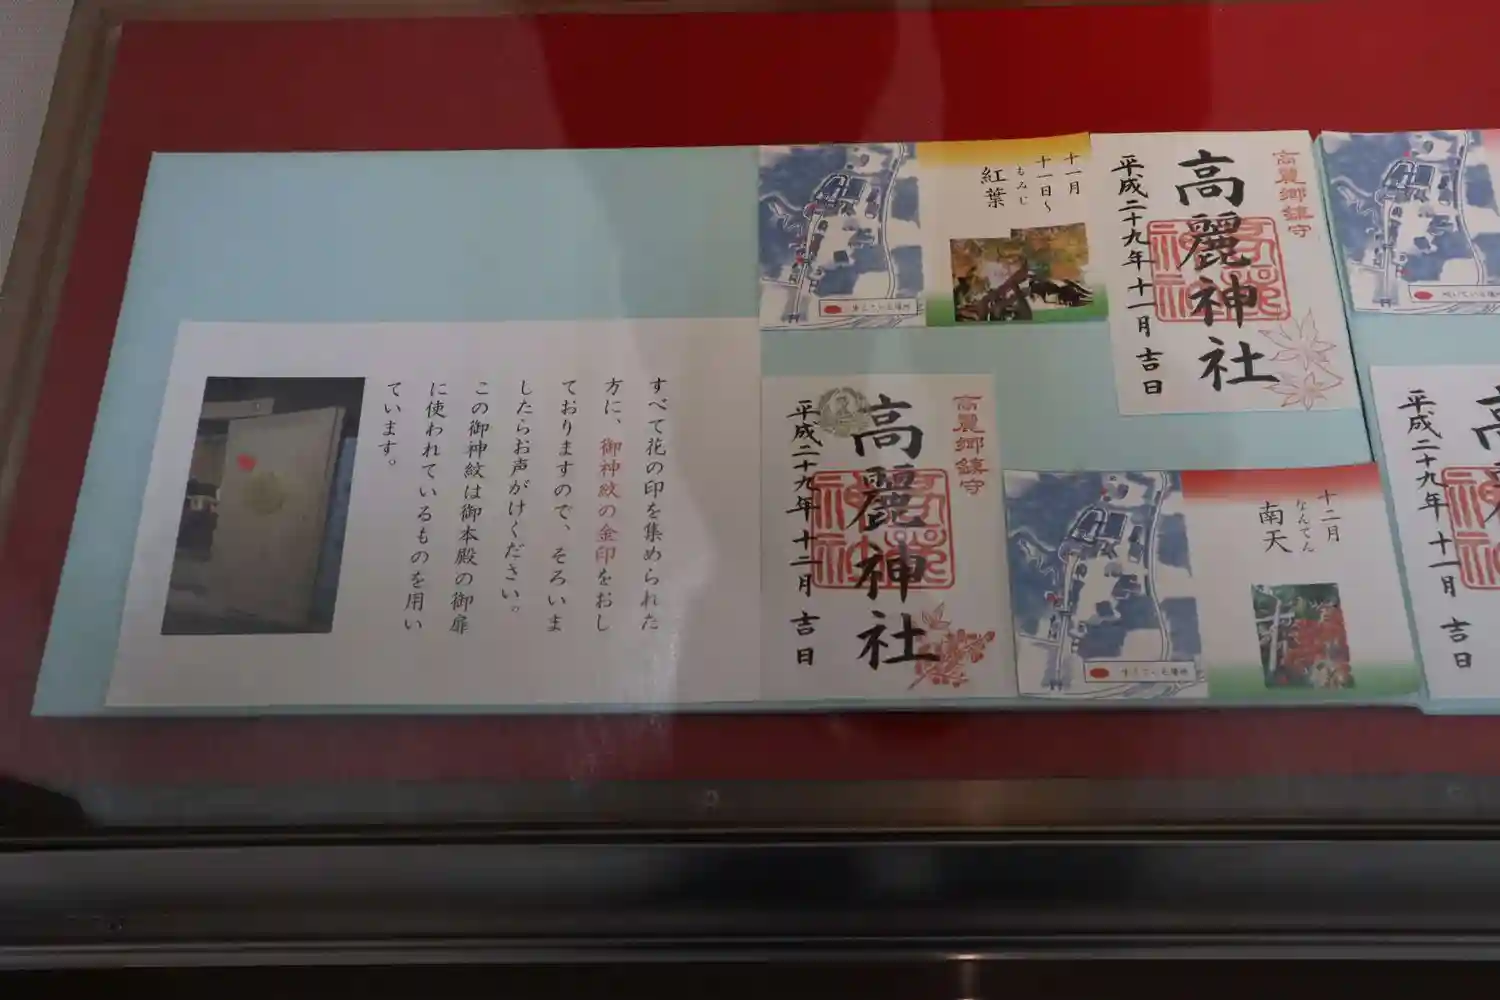 すべて花の印を集められた
方に、御神紋の金印をおし
ておりますので、そろいま
したらお声がけください。
この御神紋は御本殿の御扉
に使われているものを用い
ています。
十一月
十一日〜
もみじ
紅葉
高麗郷鎮守
高麗神社
平成二十九年十一月 吉日
高麗郷鎮守
高麗神社
平成二十九年十二月 吉日
十二月
なんてん
南天
平成二十九年十一月 吉日